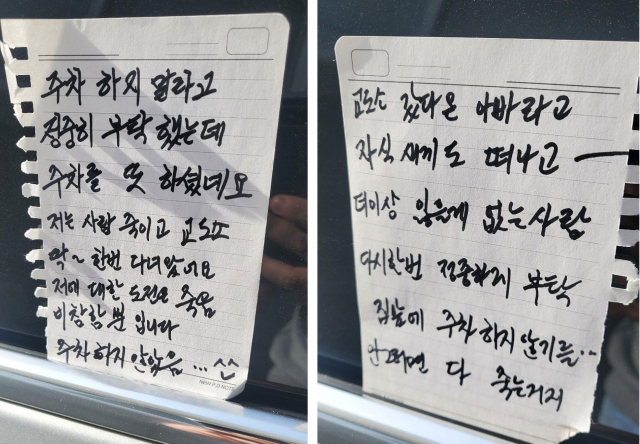 주차 하지 말라고
정중히 부탁 했는데
주차를 또 하셨네요
저는 사람 죽이고 교도소
딱~ 한번 다녀왔어요
저에 대한 도전은 죽음
비참함뿐 입니다
주차하지 않았음 ... ^^
교도소 갔다온 아빠라고
자식 새끼도 떠나고 —
더이상 잃을게 없는사람
다시한번 정중하게 부탁
집앞에 주차하지 않기를..
안그러면 다 죽는거지